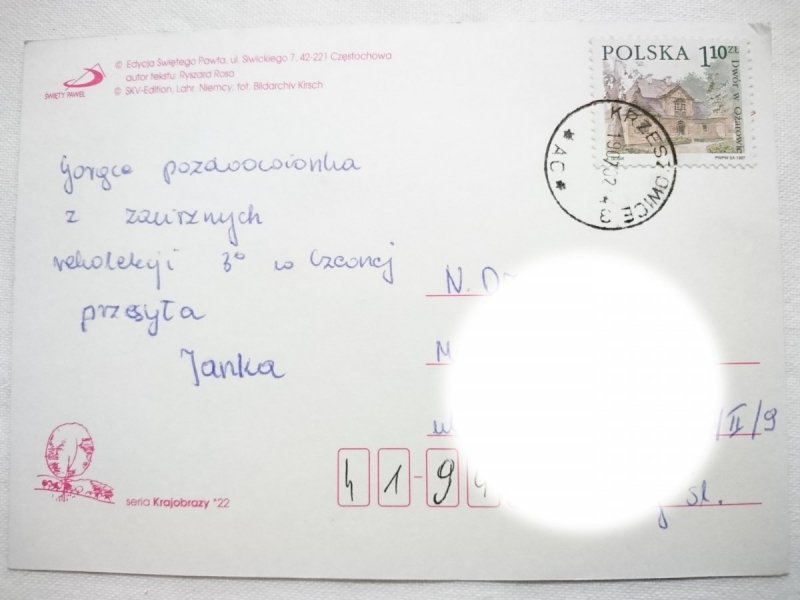 © Edycja Świętego Pawła, ul. Siwickiego 7, 42-221 Częstochowa
autor tekstu: Ryszard Rosa
© SKV-Edition, Lahr, Niemcy; fot. Bildarchiv Kirsch
ŚWIĘTY PAWEŁ
POLSKA 1,10 ZŁ
Dwór w Ożarowie
PWPW SA 1997
KRZESZOWICE 3
* AC *
Gorące pozdrowionka
z zacisznych
rekolekcji 3° w Czernej
przesyła
Janka
N. D
M
ul /II/9
41-94
śl.
seria Krajobrazy *22